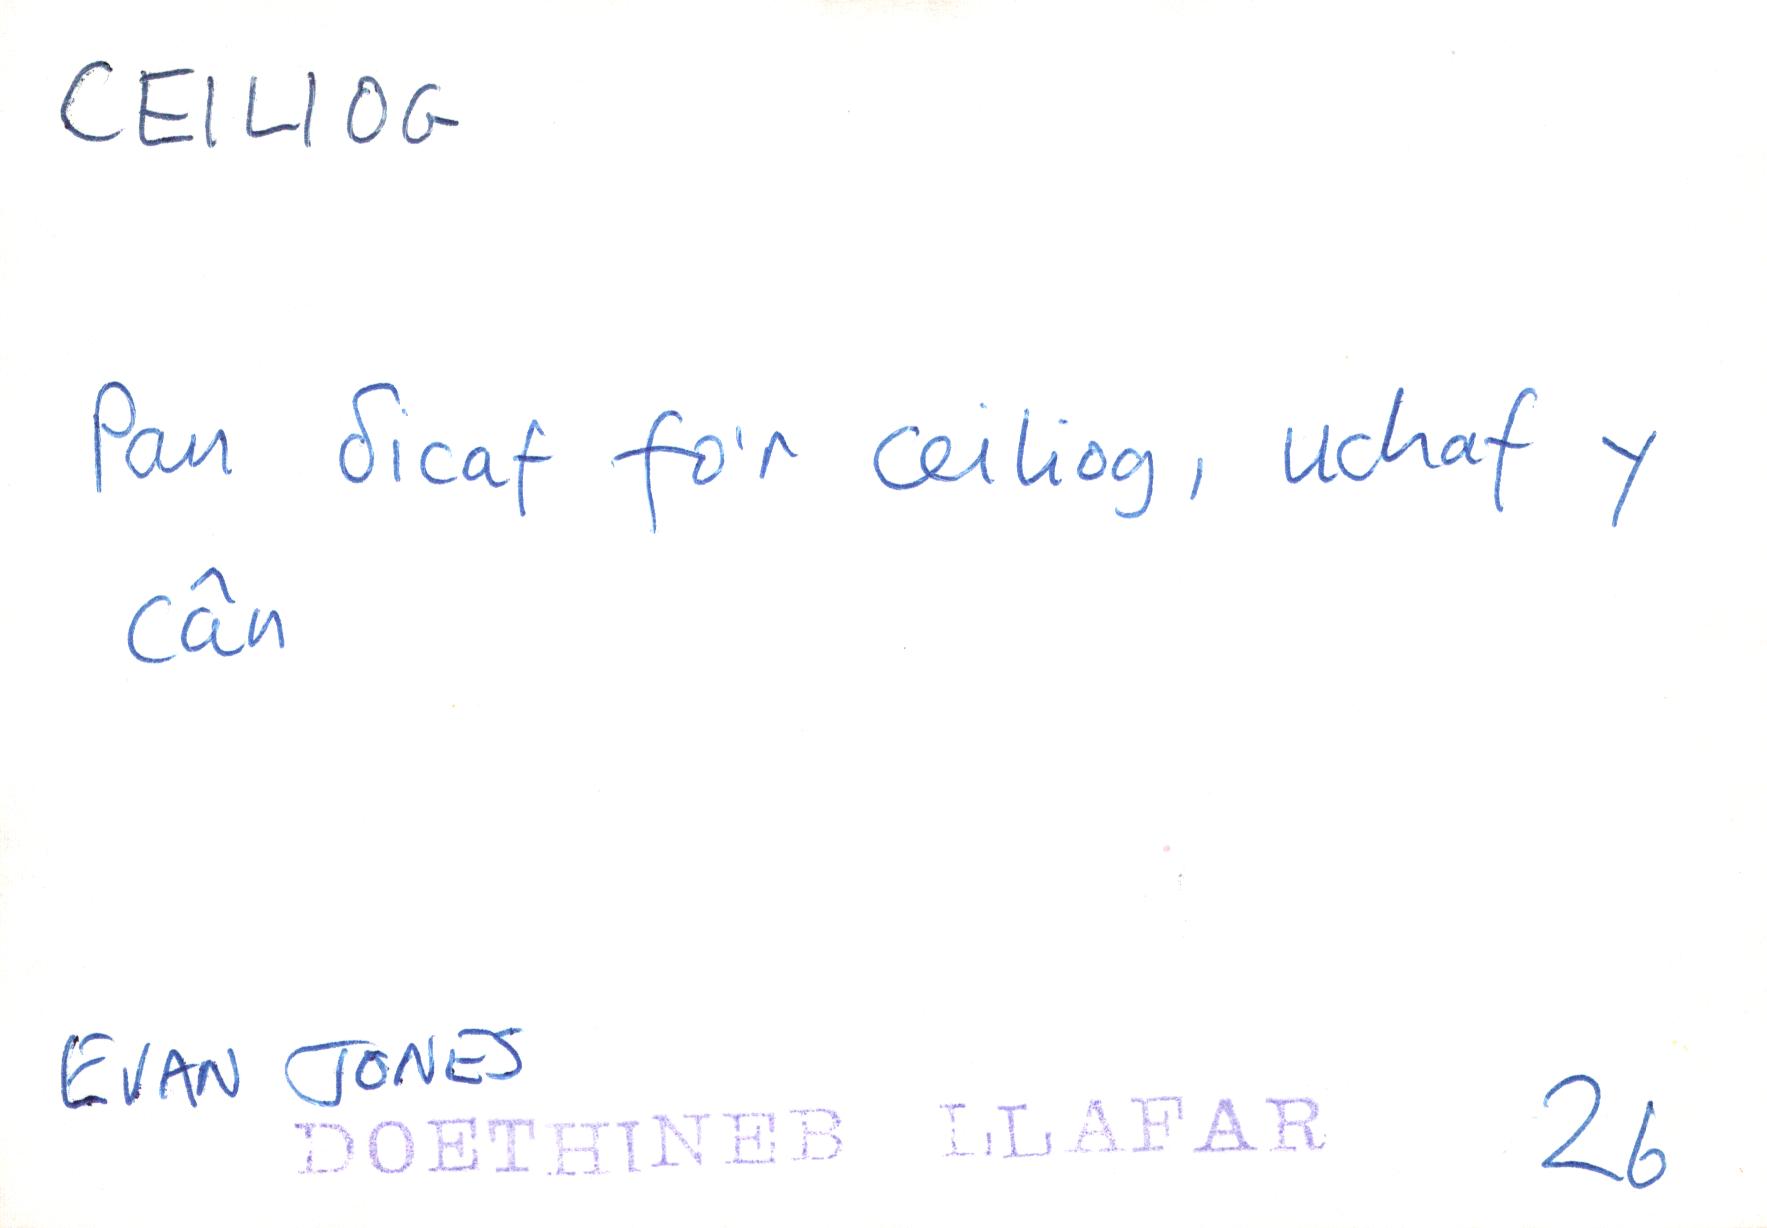 CEILIOG
Pan δicaf fo'r ceiliog, uchaf y
cân
EVAN JONES
DOETHINEB LLAFAR 26